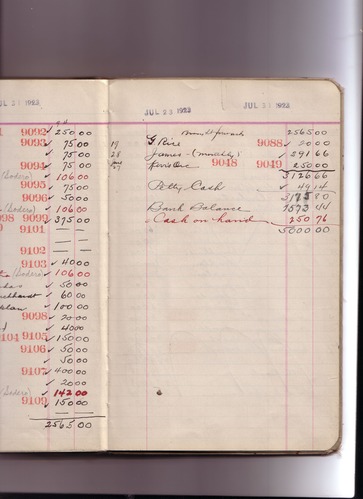 JUL 21 1923
9092 250 00
9093 75 00
75 00
9094 75 00
(Sodero) 106 00
9095 75 00
9096 50 00
(Sodero) 106 00
9098 9099 375 00
9101
9102
9103 40 00
(Sodero) 106 00
50 00
60 00
100 00
9098 20 00
40 00
9104 9105 150 00
9106 50 00
50 00
9107 400 00
20 00
(Sodero) 142 00
9109 150 00
2565 00
JUL 23 1923 JUL 23 1923
Brought forward 2565 00
19 G Rice 9088 20 00
28 James - (Monthly) 9048 391 66
9049 250 00
3126 66
Petty Cash 49 14
3175 80
Bank Balance 1573 44
Cash on hand 250 76
5000 00